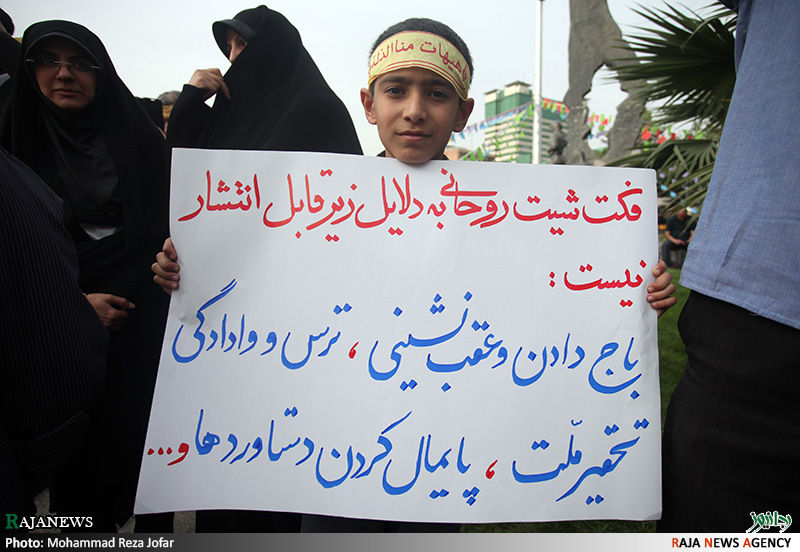 هیهات مناالذله
فکت شیت روحانی به دلایل زیر قابل انتشار
نیست :
باج دادن و عقب نشینی ، ترس و وادادگی
تحقیر ملّت ، پایمال کردن دستاوردها و...
RAJANEWS
رجانیوز
Photo: Mohammad Reza Jofar
RAJA NEWS AGENCY